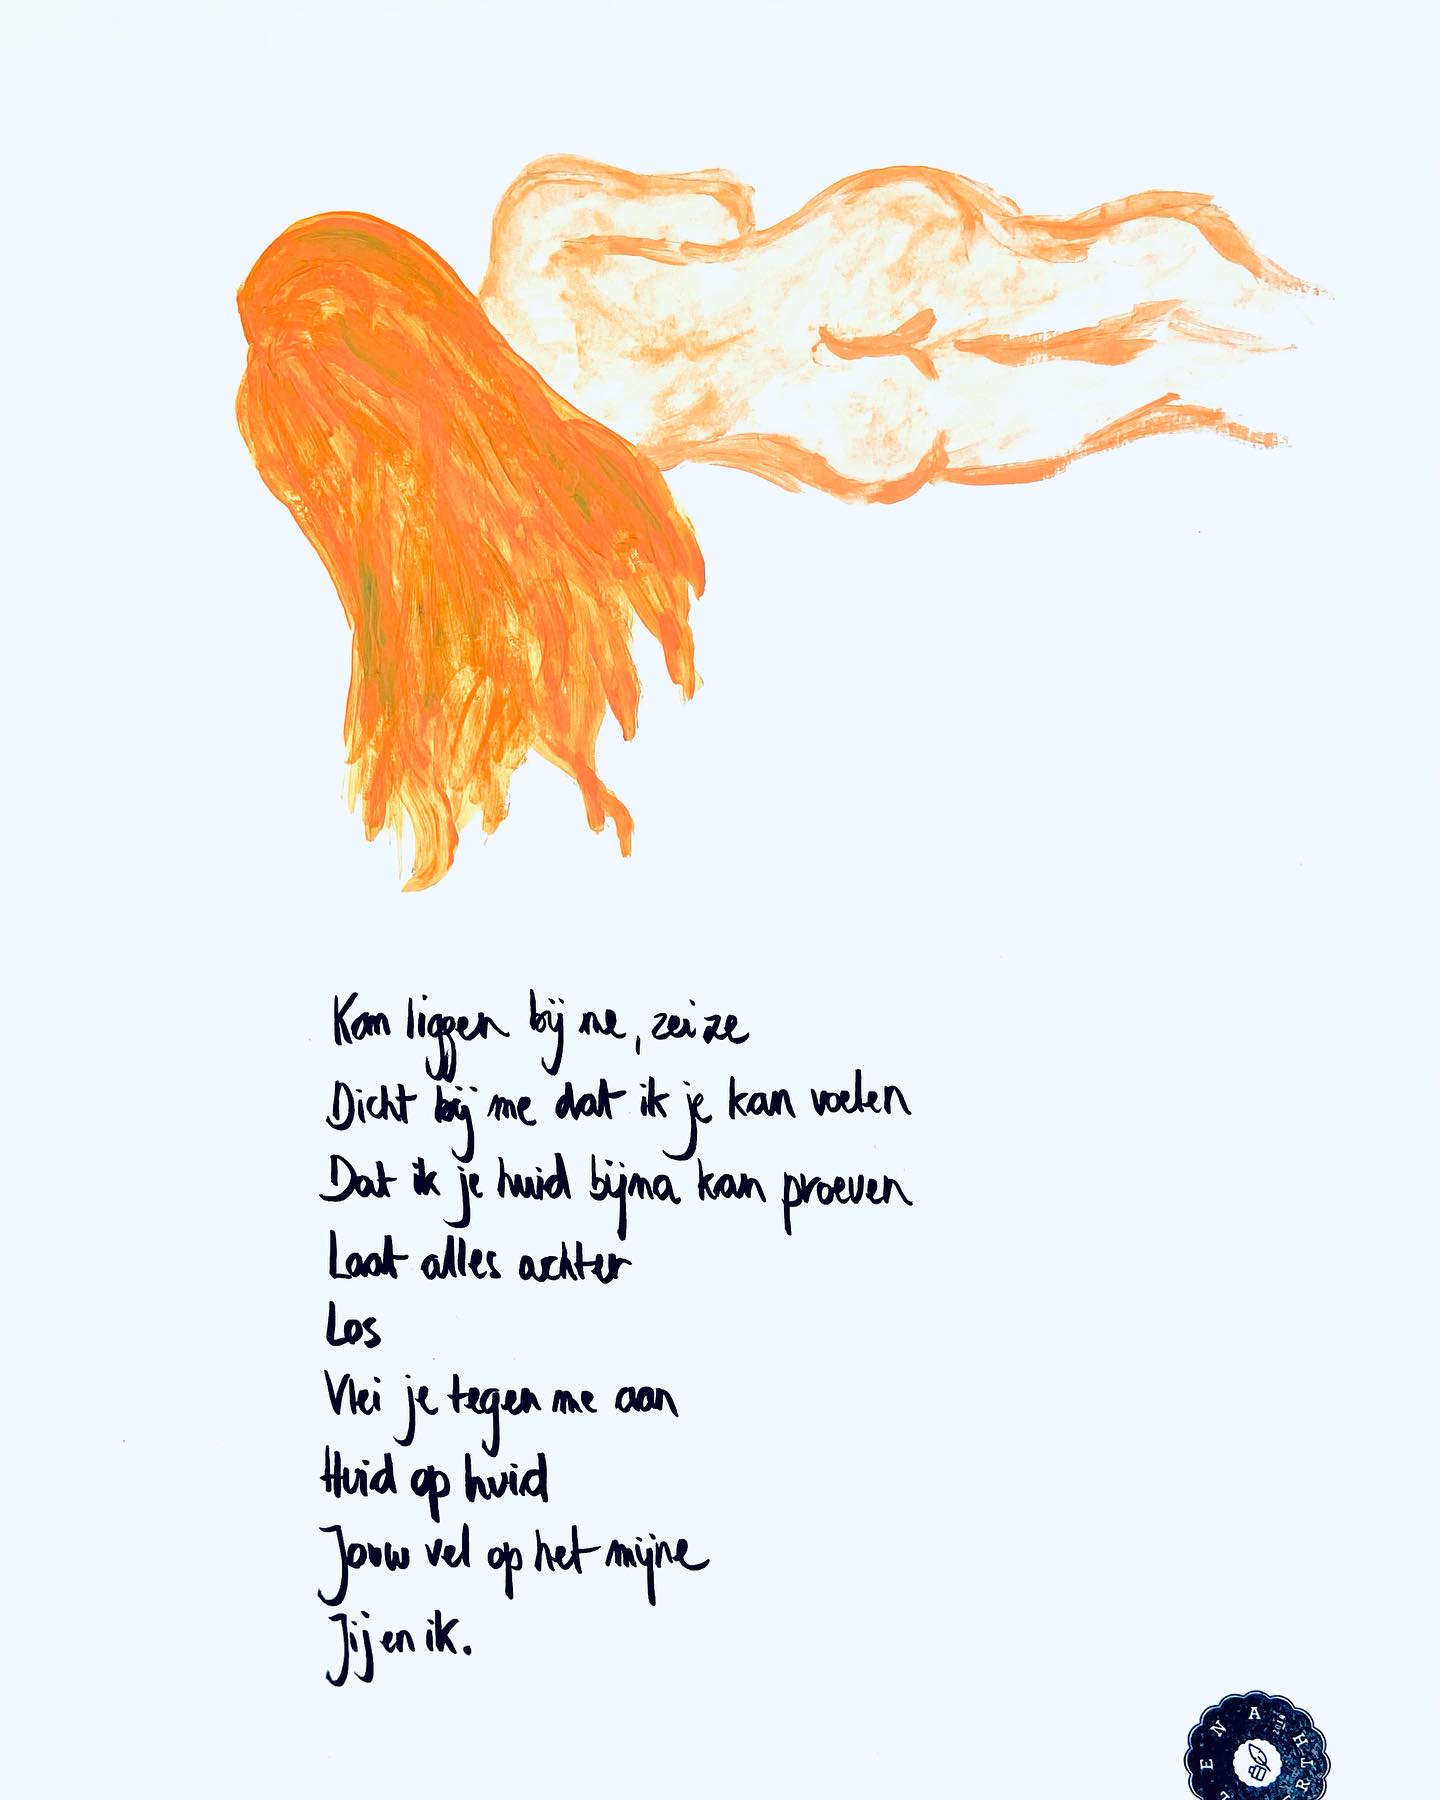 Kom liggen bij me, zei ze
Dicht bij me dat ik je kan voelen
Dat ik je huid bijna kan proeven
Laat alles achter
Los
Vlei je tegen me aan
Huid op huid
Jouw vel op het mijne
Jij en ik.
ENA H
2018